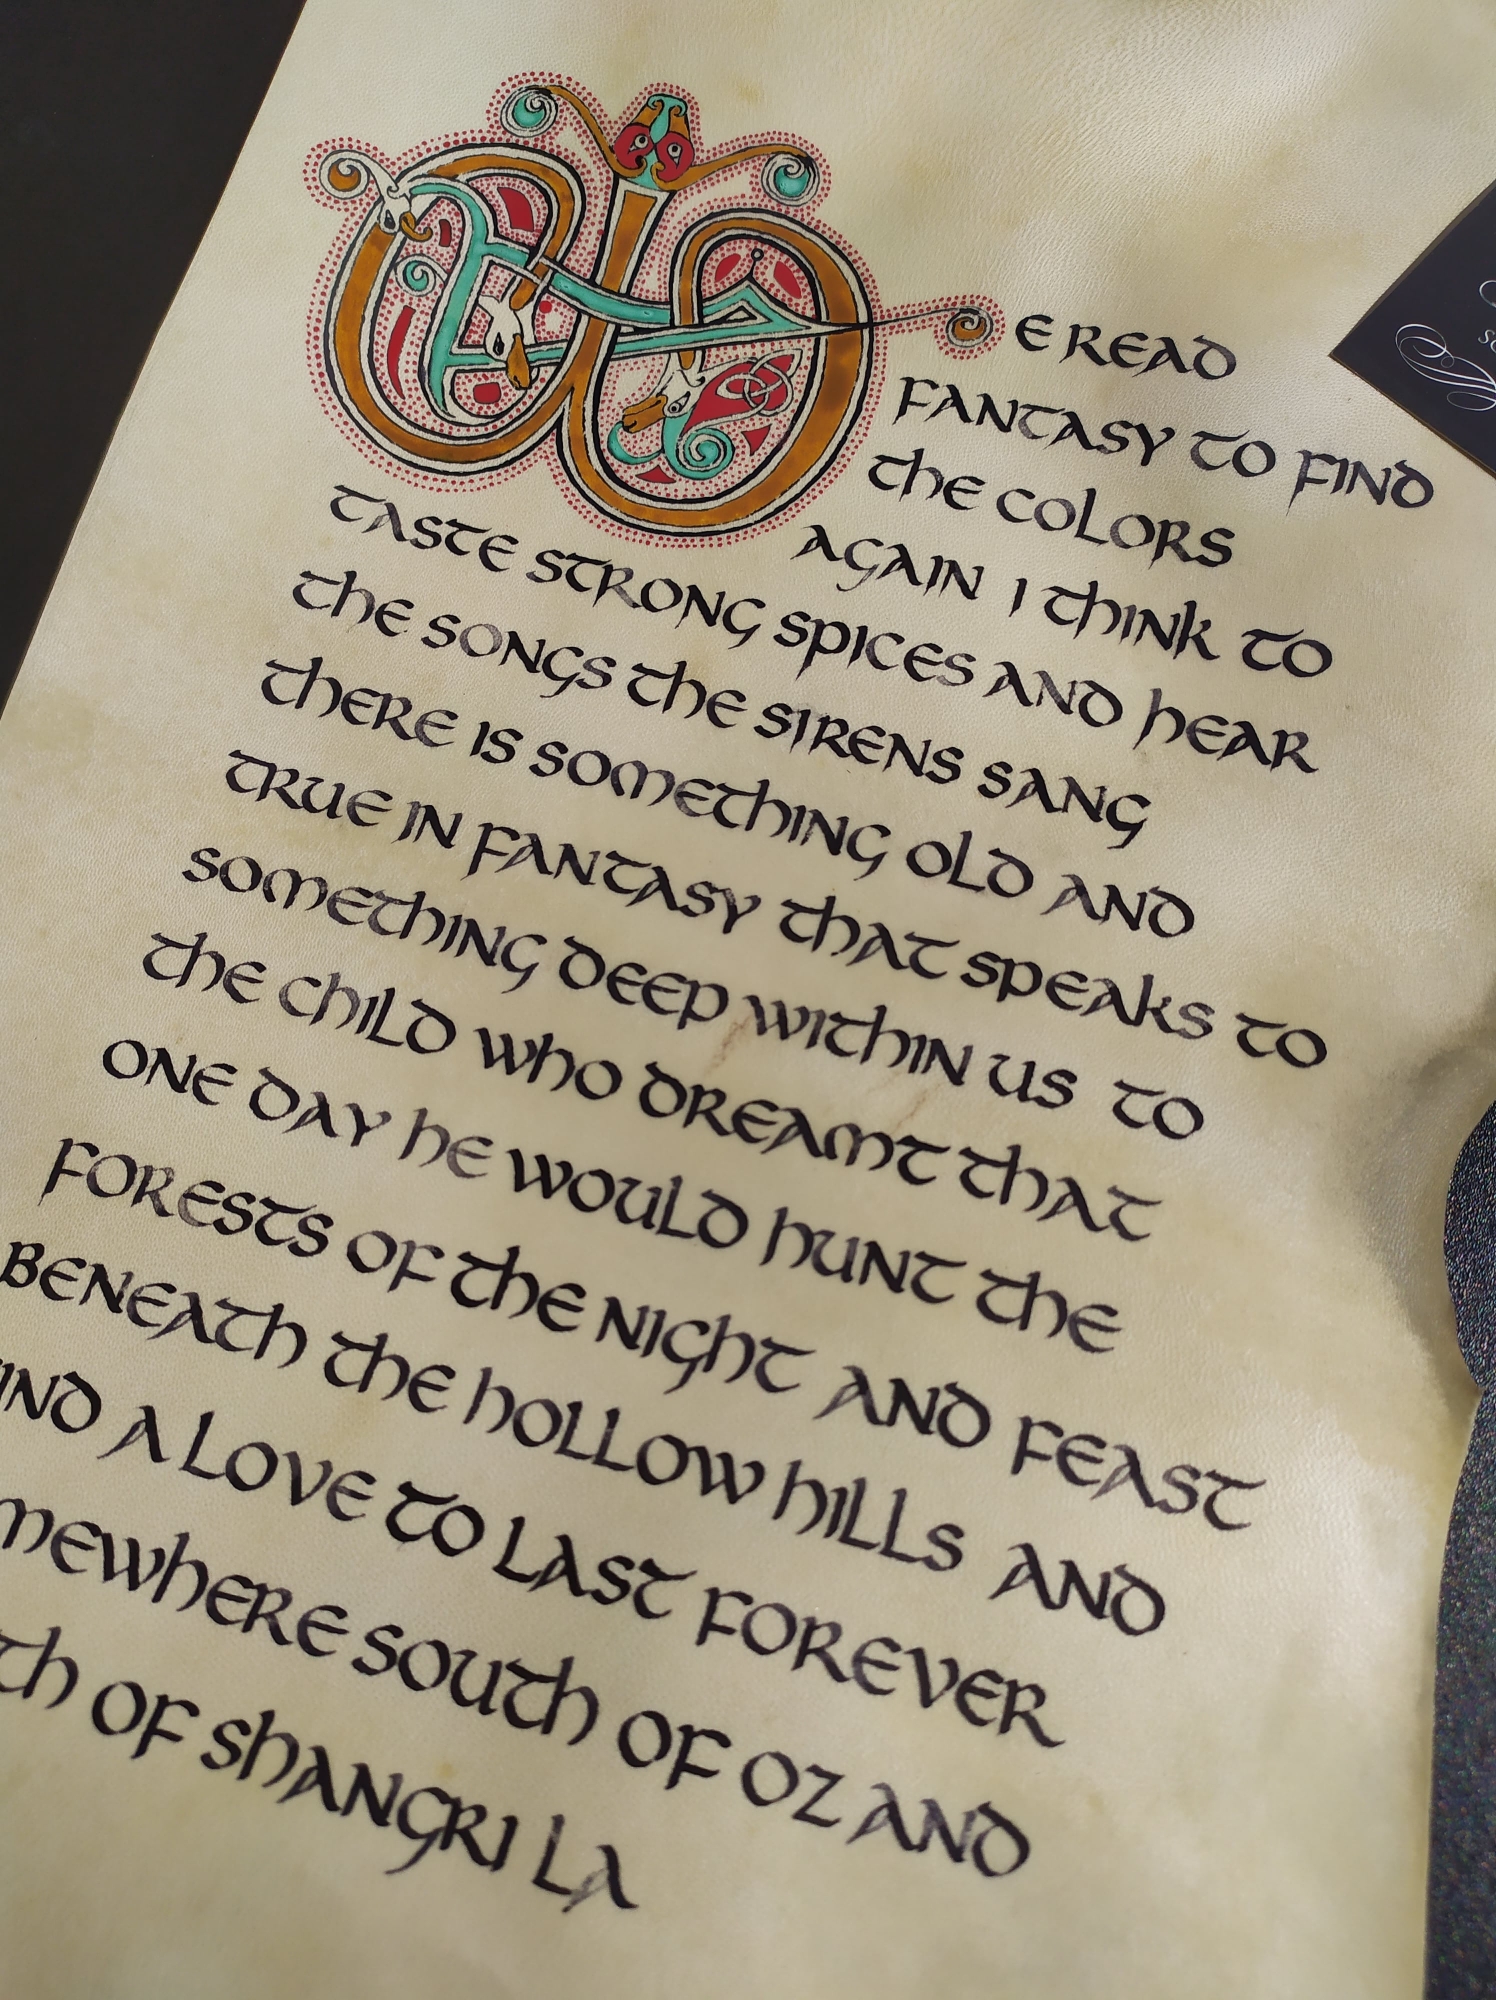 WE READ
FANTASY TO FIND
THE COLORS
AGAIN I THINK TO
TASTE STRONG SPICES AND HEAR
THE SONGS THE SIRENS SANG
THERE IS SOMETHING OLD AND
TRUE IN FANTASY THAT SPEAKS TO
SOMETHING DEEP WITHIN US TO
THE CHILD WHO DREAMT THAT
ONE DAY HE WOULD HUNT THE
FORESTS OF THE NIGHT AND FEAST
BENEATH THE HOLLOW HILLS AND
IND A LOVE TO LAST FOREVER
MEWHERE SOUTH OF OZ AND
TH OF SHANGRI LA